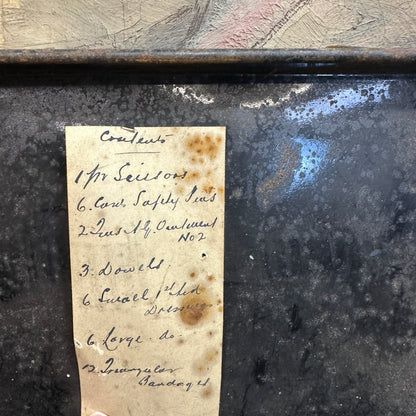 Contents
1 pr Scissors
6. Cards Safety Pins
2. Tins A.f. Ointment
No 2
3. Dowels
6 Small 1st Aid
Dressings
6 Large do
2. Triangular
Bandages